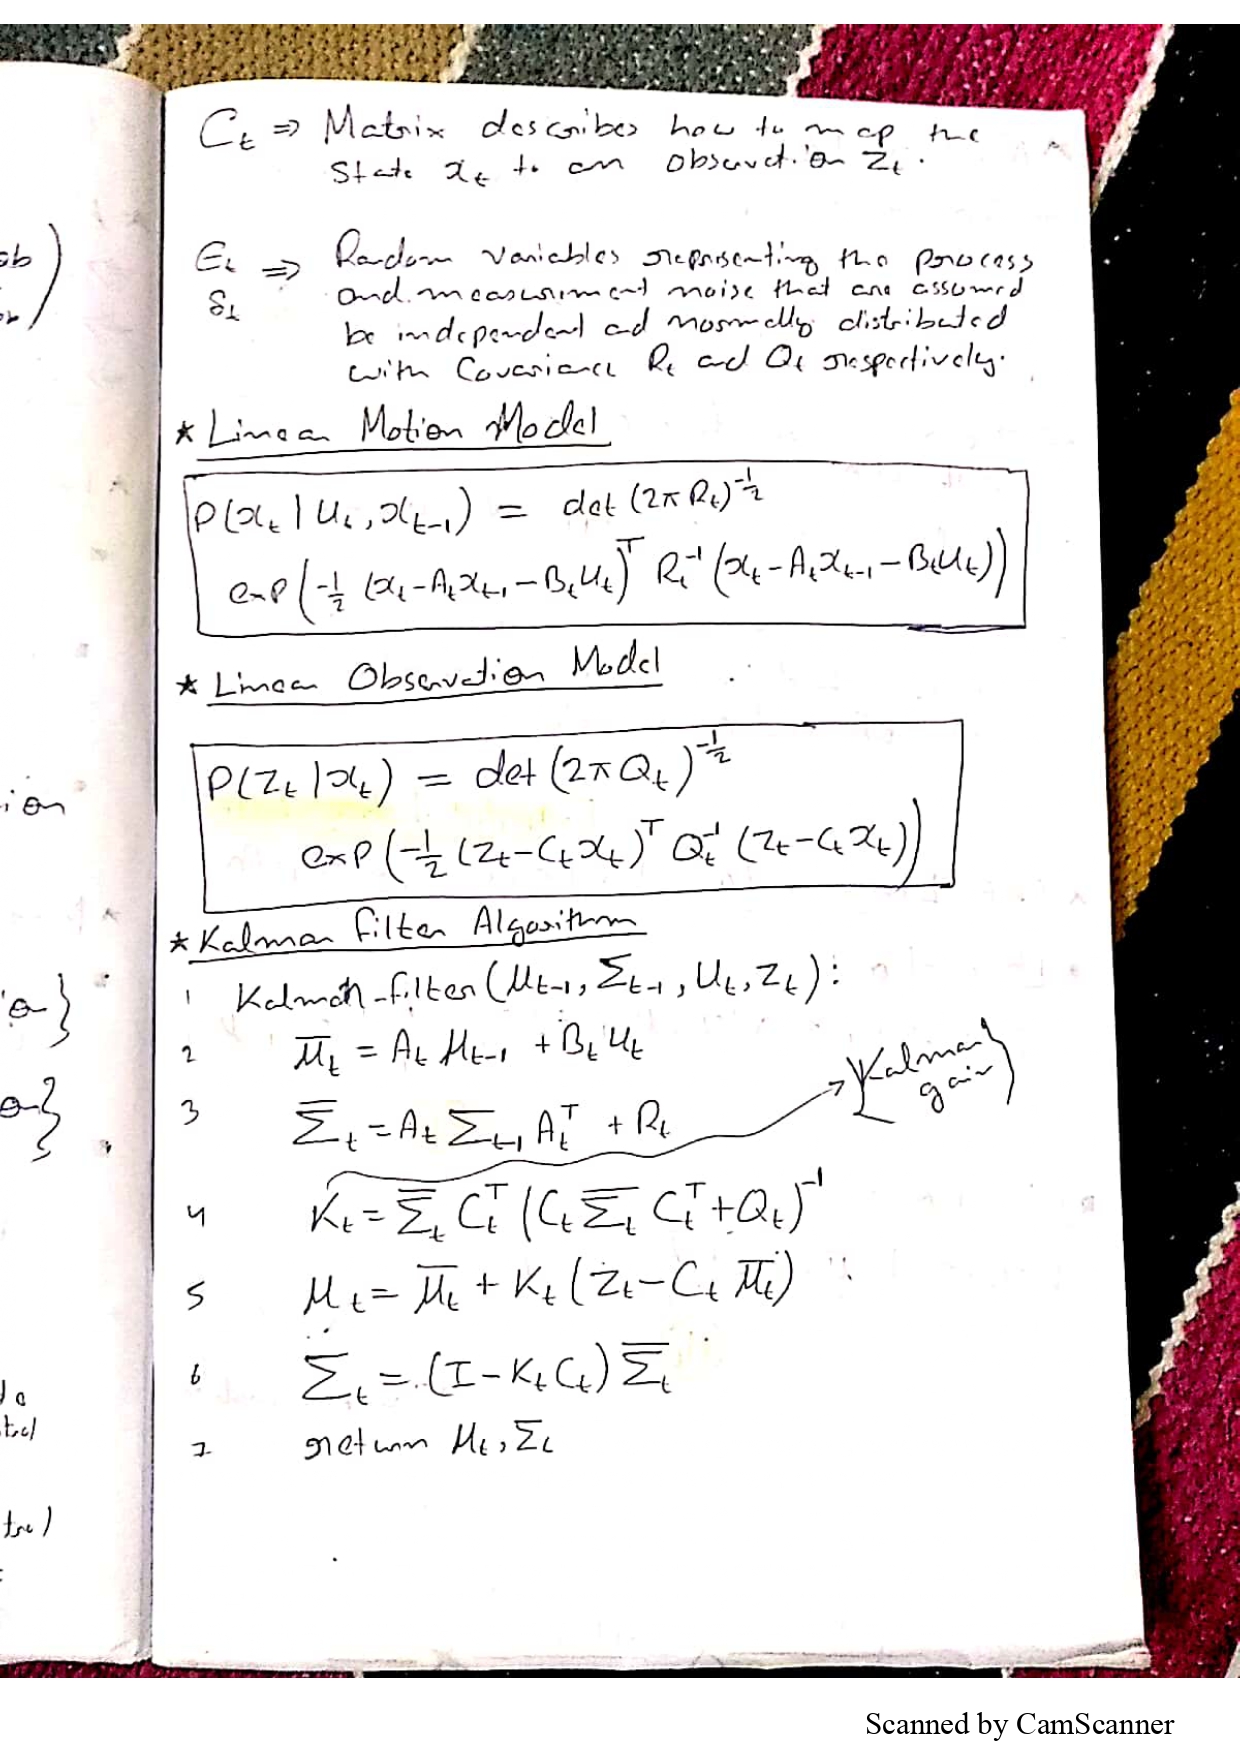 C_t ⇒ Matrix describes how to map the
State x_t to an observation Z_t.
ϵ_t
δ_t ⇒ Random variables representing the process
and measurement noise that are assumed
be independent ad normally distributed
with Covariance R_t and Q_t respectively.
* Linear Motion Model
P(x_t | U_t, x_{t-1}) = det (2π R_t)^{-1/2}
exp(-1/2 (x_t - A_t x_{t-1} - B_t U_t)^T R_t^{-1} (x_t - A_t x_{t-1} - B_t U_t))
* Linear Observation Model
P(Z_t | x_t) = det (2π Q_t)^{-1/2}
exp(-1/2 (Z_t - C_t x_t)^T Q_t^{-1} (Z_t - C_t x_t))
* Kalman filter Algorithm
1 Kalman-filter (μ_{t-1}, Σ_{t-1}, U_t, Z_t):
2 μ̄_t = A_t μ_{t-1} + B_t U_t
Kalman
gain
3 Σ̄_t = A_t Σ_{t-1} A_t^T + R_t
4 K_t = Σ̄_t C_t^T (C_t Σ̄_t C_t^T + Q_t)^{-1}
5 μ_t = μ̄_t + K_t (Z_t - C_t μ̄_t)
6 Σ_t = (I - K_t C_t) Σ̄_t
7 return μ_t, Σ_t
Scanned by CamScanner